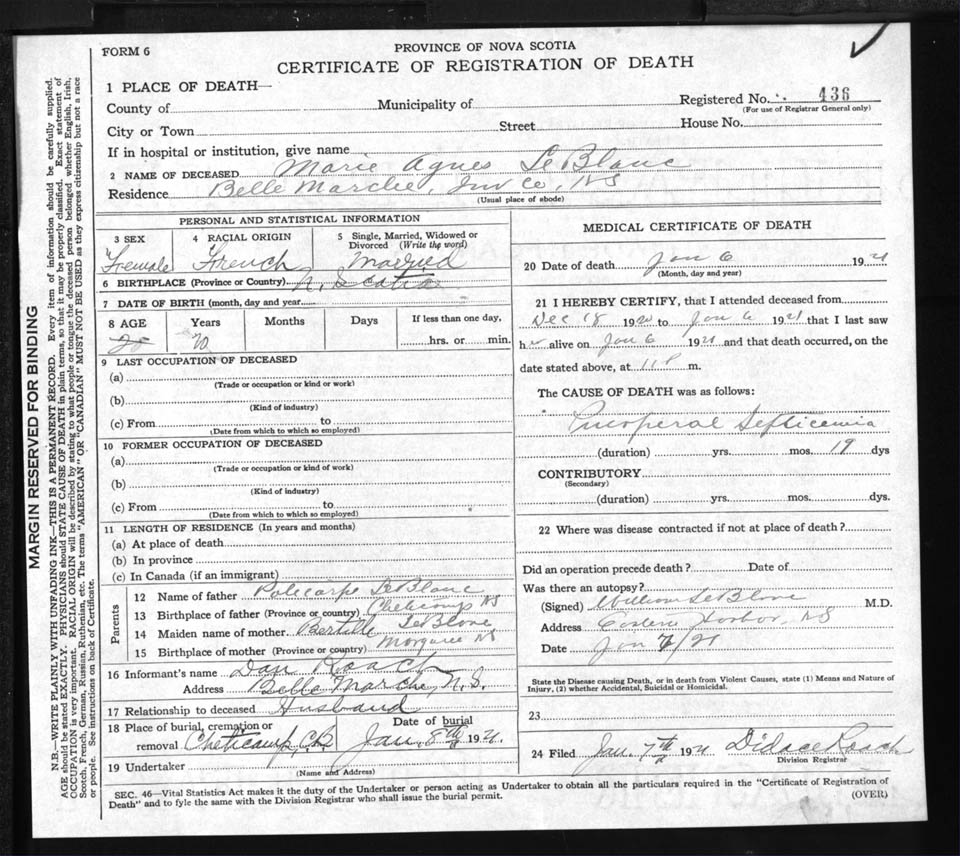 FORM 6
PROVINCE OF NOVA SCOTIA
CERTIFICATE OF REGISTRATION OF DEATH
1 PLACE OF DEATH—
County of Municipality of Registered No. 436
(For use of Registrar General only)
City or Town Street House No.
If in hospital or institution, give name
2 NAME OF DECEASED Marie Agnes LeBlanc
Residence Belle Marche, Inv Co, NS
(Usual place of abode)
PERSONAL AND STATISTICAL INFORMATION
3 SEX 4 RACIAL ORIGIN 5 Single, Married, Widowed or Divorced (Write the word)
Female French Married
6 BIRTHPLACE (Province or Country) N. Scotia
7 DATE OF BIRTH (month, day and year)
8 AGE Years Months Days If less than one day,
20 hrs. or min.
9 LAST OCCUPATION OF DECEASED
(a)
(Trade or occupation or kind or work)
(b)
(Kind of industry)
(c) From to
(Date from which to which so employed)
10 FORMER OCCUPATION OF DECEASED
(a)
(Trade or occupation or kind of work)
(b)
(Kind of industry)
(c) From to
(Date from which to which so employed)
11 LENGTH OF RESIDENCE (In years and months)
(a) At place of death
(b) In province
(c) In Canada (if an immigrant)
Parents
12 Name of father Policarpe LeBlanc
13 Birthplace of father (Province or country) Cheticamp NS
14 Maiden name of mother Bertille LeBlanc
15 Birthplace of mother (Province or country) Margaree NS
16 Informant's name Dan Roach
Address Belle Marche, N.S.
17 Relationship to deceased Husband
18 Place of burial, cremation or Date of burial
removal Cheticamp, CB Jan. 8th 1921.
19 Undertaker
(Name and Address)
MEDICAL CERTIFICATE OF DEATH
20 Date of death Jan 6 1921
(Month, day and year)
21 I HEREBY CERTIFY, that I attended deceased from
Dec 18 1920 to Jan 6 1921 that I last saw
her alive on Jan 6 1921 and that death occurred, on the
date stated above, at 11 P m.
The CAUSE OF DEATH was as follows:
Puerperal Septicemia
(duration) yrs. mos. 19 dys
CONTRIBUTORY
(Secondary)
(duration) yrs. mos. dys.
22 Where was disease contracted if not at place of death?
Did an operation precede death? Date of
Was there an autopsy?
(Signed) William LeBlanc M.D.
Address Eastern Harbor, NS
Date Jan 7/21
State the Disease causing Death, or in death from Violent Causes, state (1) Means and Nature of Injury, (2) whether Accidental, Suicidal or Homicidal.
23
24 Filed Jan. 7th 1921 Didace Roach
Division Registrar
SEC. 46—Vital Statistics Act makes it the duty of the Undertaker or person acting as Undertaker to obtain all the particulars required in the "Certificate of Registration of
Death" and to fyle the same with the Division Registrar who shall issue the burial permit.
(OVER)
MARGIN RESERVED FOR BINDING
N.B.—WRITE PLAINLY WITH UNFADING INK—THIS IS A PERMANENT RECORD. Every item of information should be carefully supplied.
AGE should be stated EXACTLY. PHYSICIANS should STATE CAUSE OF DEATH in plain terms, so that it may be properly classified. Exact statement of
OCCUPATION is very important. RACIAL ORIGIN will be described by stating to what people or tongue the deceased person belonged whether English, Irish,
Scotch, French, German, Russian, Ruthenian, etc. The terms "AMERICAN" OR "CANADIAN" MUST NOT BE USED as they express citizenship but not a race
or people. See instructions on back of Certificate.